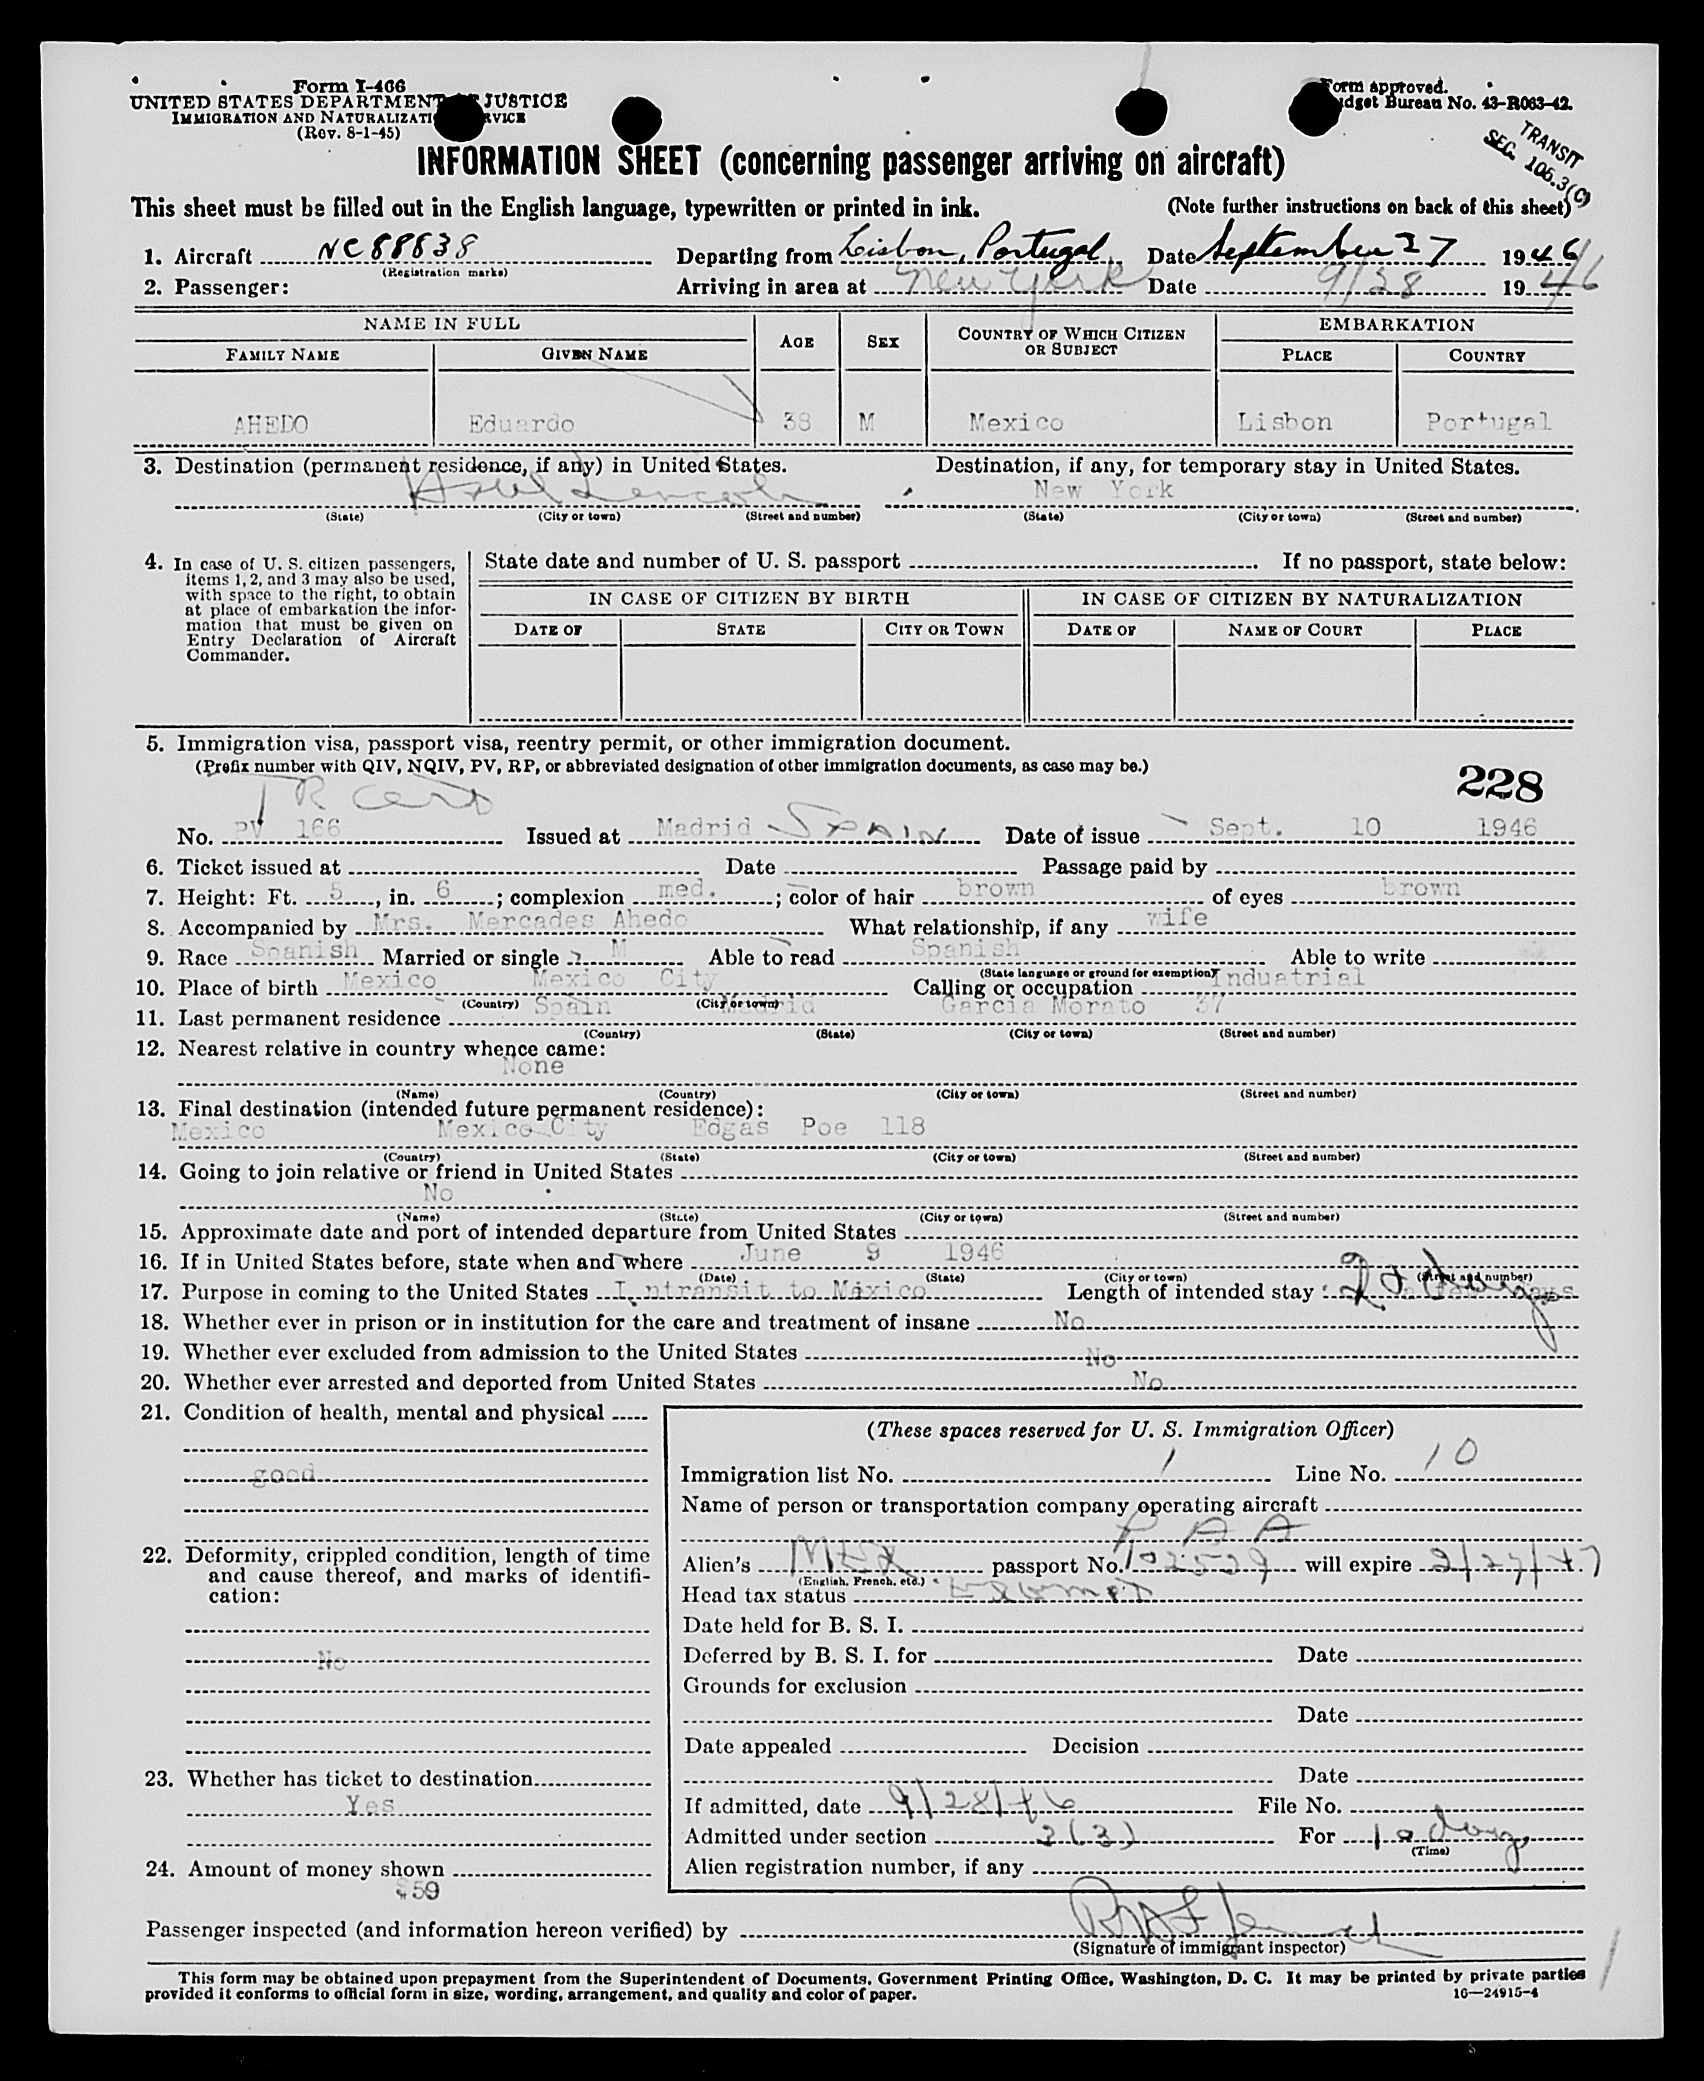 Form I-466
UNITED STATES DEPARTMENT JUSTICE
IMMIGRATION AND NATURALIZATI RVICE
(Rev. 8-1-45)
Form approved.
dget Bureau No. 43-R063-42.
TRANSIT
SEC. 106.3(C)
INFORMATION SHEET (concerning passenger arriving on aircraft)
This sheet must be filled out in the English language, typewritten or printed in ink. (Note further instructions on back of this sheet)
1. Aircraft NC88838 Departing from Lisbon, Portugal Date September 27 1946
(Registration marks)
2. Passenger: Arriving in area at New York Date 9/28 1946
NAME IN FULL AGE SEX COUNTRY OF WHICH CITIZEN OR SUBJECT EMBARKATION
FAMILY NAME GIVEN NAME PLACE COUNTRY
AHEDO Eduardo 38 M Mexico Lisbon Portugal
3. Destination (permanent residence, if any) in United States. Destination, if any, for temporary stay in United States.
Hotel Lincoln New York
(State) (City or town) (Street and number) (State) (City or town) (Street and number)
4. In case of U. S. citizen passengers, items 1, 2, and 3 may also be used, with space to the right, to obtain at place of embarkation the information that must be given on Entry Declaration of Aircraft Commander.
State date and number of U. S. passport If no passport, state below:
IN CASE OF CITIZEN BY BIRTH IN CASE OF CITIZEN BY NATURALIZATION
DATE OF STATE CITY OR TOWN DATE OF NAME OF COURT PLACE
5. Immigration visa, passport visa, reentry permit, or other immigration document.
(Prefix number with QIV, NQIV, PV, RP, or abbreviated designation of other immigration documents, as case may be.)
228
TR Cert
No. PV 166 Issued at Madrid SPAIN Date of issue Sept. 10 1946
6. Ticket issued at Date Passage paid by
7. Height: Ft. 5, in. 6; complexion med.; color of hair brown of eyes brown
8. Accompanied by Mrs. Mercades Ahedo What relationship, if any wife
9. Race Spanish Married or single M Able to read Spanish Able to write
(State language or ground for exemption)
10. Place of birth Mexico Mexico City Calling or occupation Industrial
(Country) (City or town)
11. Last permanent residence Spain Madrid Garcia Morato 37
(Country) (State) (City or town) (Street and number)
12. Nearest relative in country whence came:
None
(Name) (Country) (City or town) (Street and number)
13. Final destination (intended future permanent residence):
Mexico Mexico City Edgas Poe 118
(Country) (State) (City or town) (Street and number)
14. Going to join relative or friend in United States
No
(Name) (State) (City or town) (Street and number)
15. Approximate date and port of intended departure from United States
16. If in United States before, state when and where June 9 1946
(Date) (State) (City or town) (Street and number)
17. Purpose in coming to the United States Intransit to Mexico Length of intended stay days
18. Whether ever in prison or in institution for the care and treatment of insane No
19. Whether ever excluded from admission to the United States No
20. Whether ever arrested and deported from United States No
21. Condition of health, mental and physical
good
22. Deformity, crippled condition, length of time and cause thereof, and marks of identification:
No
23. Whether has ticket to destination
Yes
24. Amount of money shown
$59
(These spaces reserved for U. S. Immigration Officer)
Immigration list No. 1 Line No. 10
Name of person or transportation company operating aircraft
P A A
Alien's MEX passport No. 102529 will expire 2/27/47
(English, French, etc.)
Head tax status Exempt
Date held for B. S. I.
Deferred by B. S. I. for Date
Grounds for exclusion
Date
Date appealed Decision
Date
If admitted, date 9/28/46 File No.
Admitted under section 3(3) For 10 days
(Time)
Alien registration number, if any
Passenger inspected (and information hereon verified) by
(Signature of immigrant inspector)
This form may be obtained upon prepayment from the Superintendent of Documents, Government Printing Office, Washington, D. C. It may be printed by private parties
provided it conforms to official form in size, wording, arrangement, and quality and color of paper.
16—24915-4